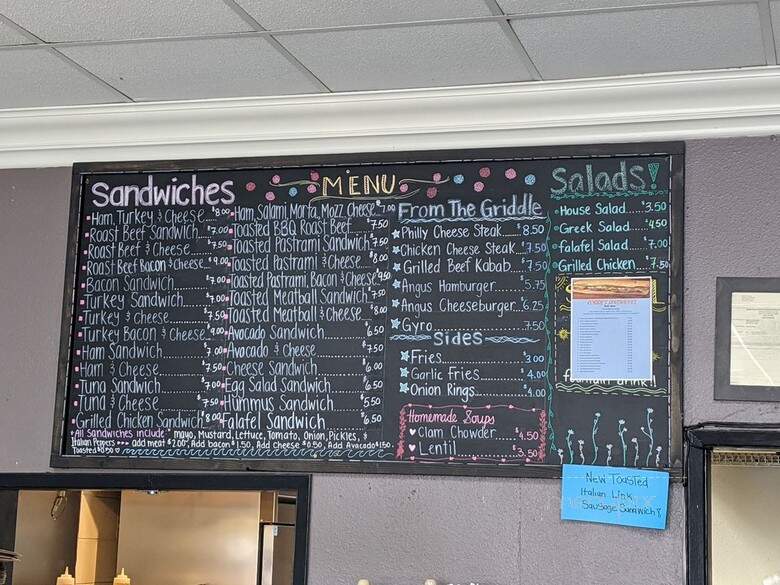 MENU
Sandwiches
Ham, Turkey & Cheese $8.00
Roast Beef Sandwich $7.00
Roast Beef & Cheese 7.50
Roast Beef Bacon & Cheese $9.00
Bacon Sandwich 7.00
Turkey Sandwich 7.00
Turkey & Cheese 7.50
Turkey Bacon & Cheese 9.00
Ham Sandwich 7.00
Ham & Cheese 7.50
Tuna Sandwich 7.00
Tuna & Cheese 7.50
Grilled Chicken Sandwich $8.00
Ham, Salami, Morta, Mozz. Cheese 7.00
Toasted BBQ Roast Beef 7.50
Toasted Pastrami Sandwich 7.50
Toasted Pastrami & Cheese $8.00
Toasted Pastrami, Bacon & Cheese $9.50
Toasted Meatball Sandwich 7.50
Toasted Meatball & Cheese $8.00
Avocado Sandwich 6.50
Avocado & Cheese 7.50
Cheese Sandwich 6.00
Egg Salad Sandwich 6.50
Hummus Sandwich 5.50
Falafel Sandwich 6.50
All Sandwiches include: mayo, Mustard, Lettuce, Tomato, Onion, Pickles, &
Italian Peppers add meat $2.00, Add bacon $1.50, Add Cheese $0.50, Add Avocado $1.50
Toasted $0.50
From The Griddle
Philly Cheese Steak 8.50
Chicken Cheese Steak 7.50
Grilled Beef Kabab 7.50
Angus Hamburger 5.75
Angus Cheeseburger 6.25
Gyro 7.50
Sides
Fries 3.00
Garlic Fries 4.00
Onion Rings 4.00
Homemade Soups
Clam Chowder $4.50
Lentil $3.50
Salads!
House Salad $3.50
Greek Salad $4.50
falafel Salad $7.00
Grilled Chicken $7.50
fountain drink!!
New Toasted
Italian Link
Sausage Sandwich $